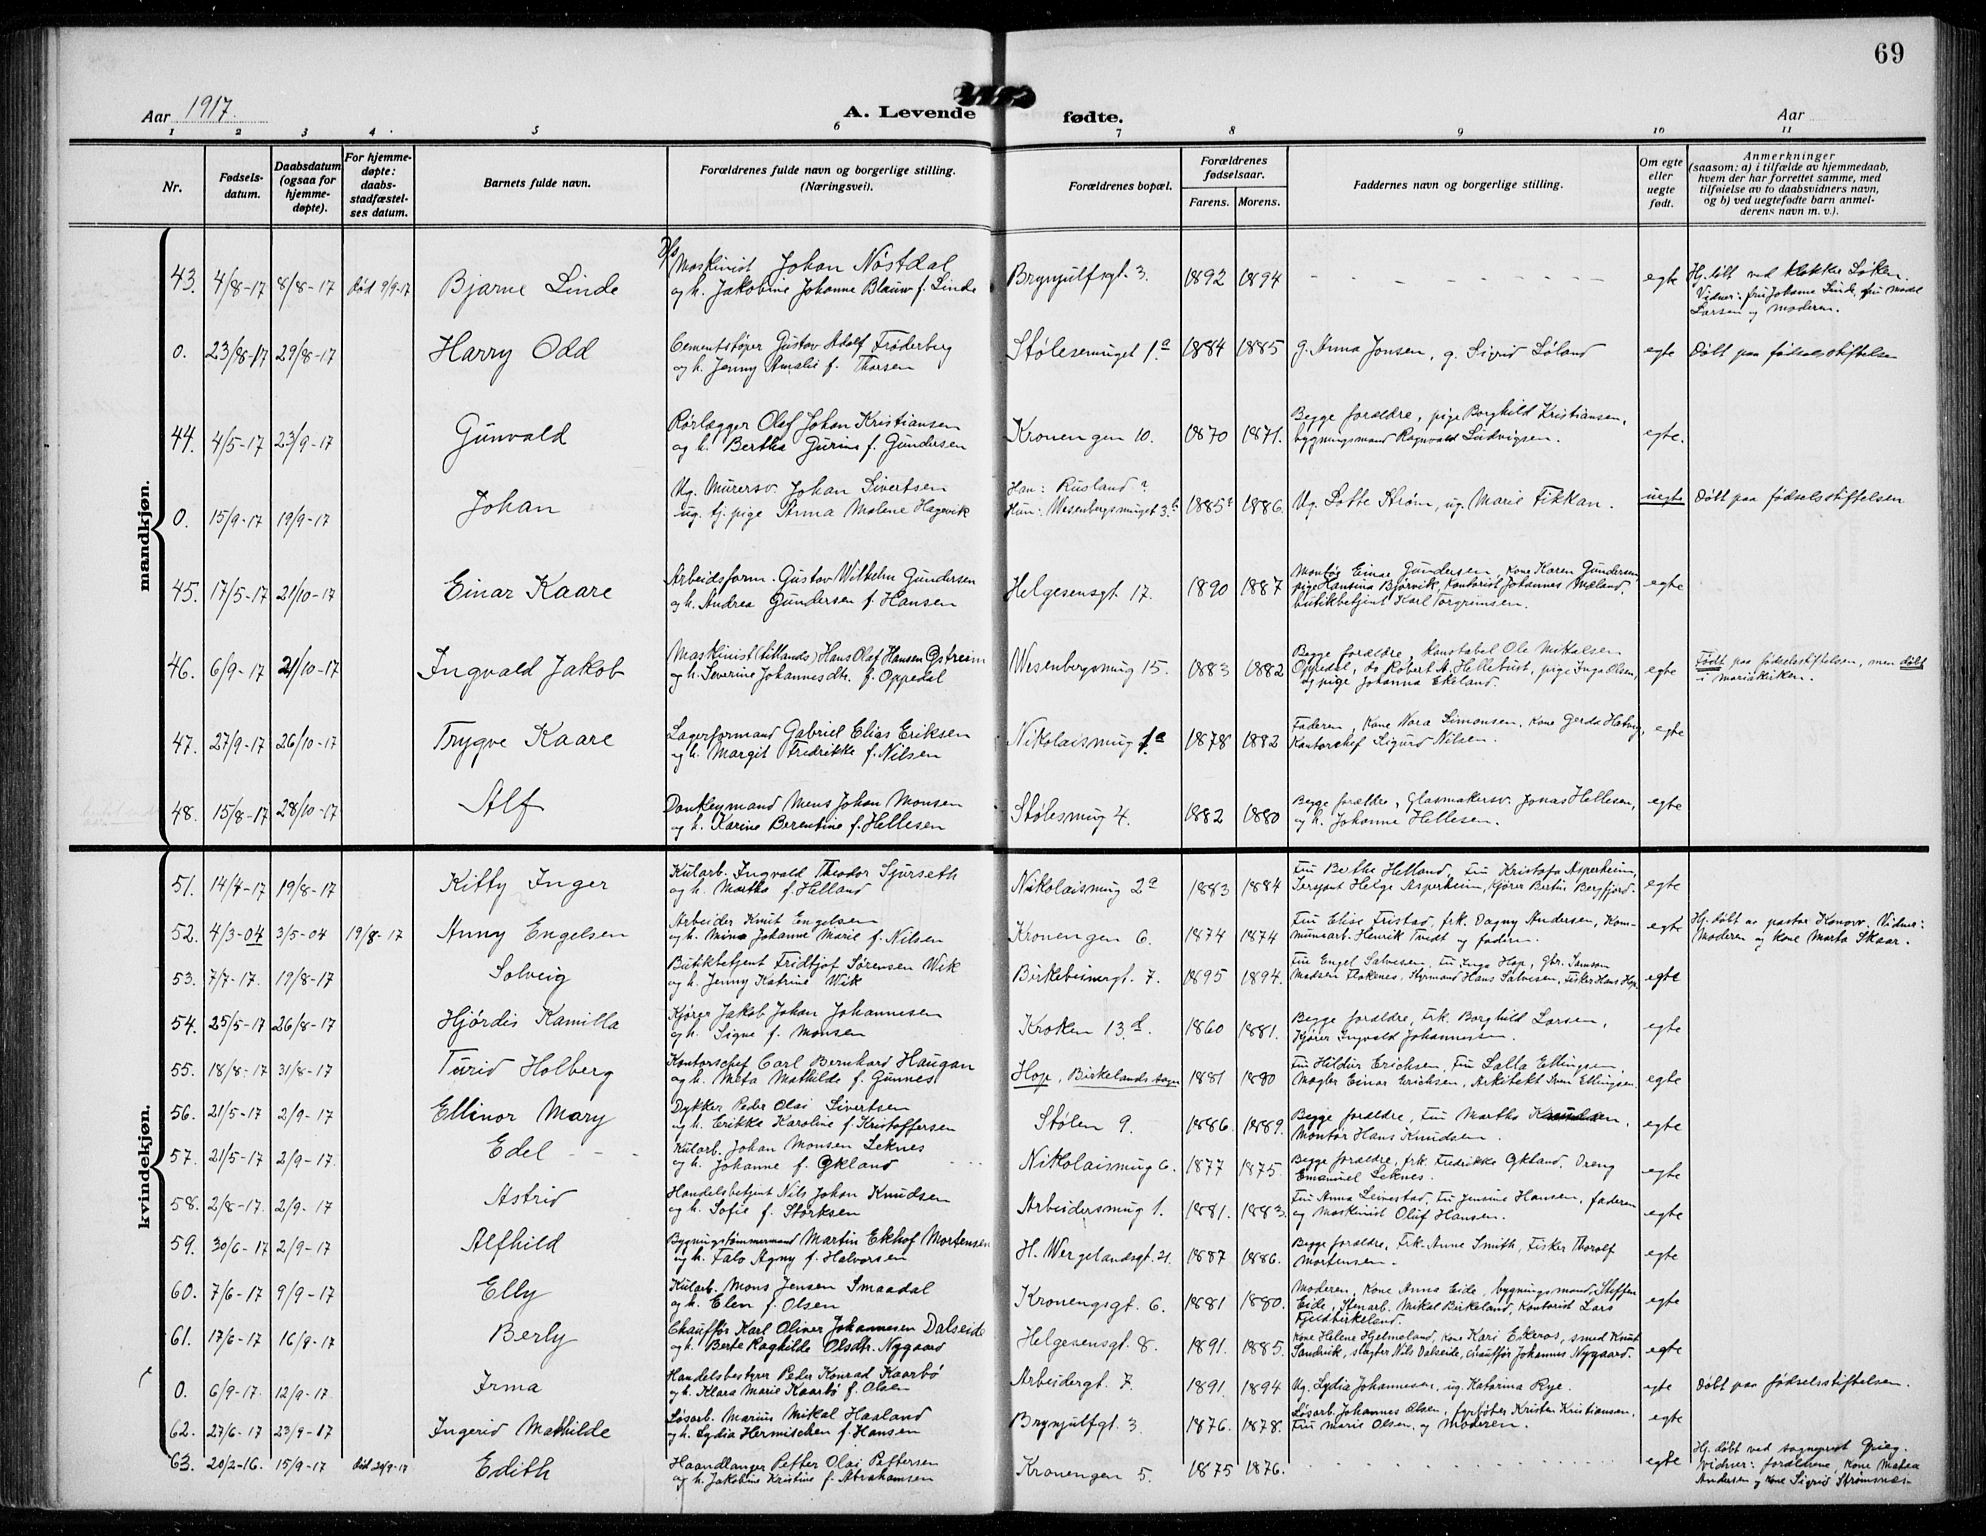 69
Aar 1917.
A. Levende fødte.
Aar
1 2 3 4 5 6 7 8 9 10 11
Nr.
Fødsels-
datum.
Daabsdatum
(ogsaa for
hjemme-
døpte).
For hjemme-
døpte:
daabs-
stadfæstel-
ses datum.
Barnets fulde navn.
Forældrenes fulde navn og borgerlige stilling.
(Næringsvei).
Forældrenes bopæl.
Forældrenes
fødselsaar.
Farens. Morens.
Faddernes navn og borgerlige stilling.
Om egte
eller
uegte
født.
Anmerkninger
(saasom: a) i tilfælde av hjemmedaab,
hvem der har forrettet samme, med
tilføielse av to daabsvidners navn,
og b) ved uegtefødte barn anmel-
derens navn m. v.).
mandkjøn.
43. 4/8-17 8/8-17 død 9/9-17 Bjarne Linde
Maskinist Johan Nøstdal
og h. Jakobine Johanne Blauw f. Linde
Brynjulfsgt. 3. 1892 1894 egte
Hj. døbt ved klokker Løken.
Vidner: fru Johanne Linde, fru Model
Larsen og moderen.
0. 23/8-17 29/8-17 Harry Odd
Cementstøper Gustav Adolf Frøderberg
og h. Jenny Amalie f. Thorsen
Stølesmuget 1a 1884 1885 g. Anna Jonsen, g. Sigrid Løland egte Døbt paa fødselsstiftelsen
44. 4/5-17 23/9-17 Gunvald
Rørlægger Olaf Johan Kristiansen
og h. Bertha Gurine f. Gundersen
Kronengen 10. 1870 1871.
Begge forældre, pige Borghild Kristiansen,
bygningsmand Ragnvald Ludvigsen.
egte.
0. 15/9-17 19/9-17 Johan
Ug. Murersv. Johan Sivertsen
ug. tj. pige Anna Malene Hagevik
Han: Rusland?
Hun: Wesenbergsmuget 3.b
1885? 1886. Ug. Lotte Strøm, ug. Marie Fikkan. uegte Døbt paa fødselsstiftelsen
45. 17/5-17 21/10-17 Einar Kaare
Arbeidsform. Gustav Wilhelm Gundersen
og h. Andrea Gundersen f. Hansen
Helgesensgt 17. 1890 1887
Montør Einar Gundersen, kone Karen Gundersen
pige Hansine Bjørvik, kontorist Johannes Mæland,
butikbetjent Karl Torgrimsen.
egte
46. 6/9-17 21/10-17 Ingvald Jakob
Maskinist (tillands) Hans Olaf Hansen Østreim
og h. Severine Johannesdtr. f. Oppedal
Wesenbergsmug 15. 1883 1882
Begge forældre, konstabel Ole Mathisen
Oppedal, do Robert A. Hellebust, pige Inga Olsen,
og pige Johanna Ekeland.
egte
Født paa fødselsstiftelsen, men døbt
i mariakirken.
47. 27/9-17 26/10-17 Trygve Kaare
Lagerformand Gabriel Elias Eriksen
og h. Margit Fredrikke f. Nilsen
Nikolaismug 1a 1878 1882
Faderen, Kone Nora Simonsen, kone Gerda Hatvig,
Kantorchef Sigurd Nilsen.
egte
48. 15/8-17 28/10-17 Alf
Donkeymand Mens Johan Monsen
og h. Karine Berentine f. Hellesen
Stølesmug 4. 1882 1880
Begge forældre, Glasmakersv. Jonas Hellesen,
og h. Johanne Hellesen.
egte
kvindekjøn.
51. 14/4-17 19/8-17 Kitty Inger
Kularb. Ingvald Theodor Sjurseth
og h. Martha f. Helland
Nikolaismug 2a 1883 1884
Fru Berthe Helland, Fru Kristofa Asperheim,
Sersjant Helge Asperheim, Kjører Bertin Bergfjord.
egte
52. 4/3-04 3/5-04 19/8-17 Anny Engelsen
Arbeider Knut Engelsen
og h. Mina Johanne Marie f. Nilsen
Kronengen 6. 1874 1874
Fru Elise Fristad, frk. Dagny Andersen, Kom-
munearb. Henrik Tvedt og faderen.
egte
Hj. døbt av pastor Konow. Vidner:
Moderen og kone Marta Skaar.
53. 7/7-17. 19/8-17 Solveig
Butikbetjent Fridtjof Sørensen Wik
og h. Jenny Katrine Wik
Birkebeinergt. 7. 1895 1894.
Fru Engel Salvesen, Fru Inga Hop, Gbr. Samson
Madsen Flokenes, Styrmand Hans Salvesen, Fisker Hans Hop
egte
54. 25/5-17 26/8-17 Hjördis Kamilla
Kjører Jakob Johan Johannesen
og h. Signe f. Monsen
Kroken 13d. 1860 1881.
Begge forældre, Frk. Borghild Larsen,
Kjører Ingvald Johannessen.
egte
55. 18/8-17 31/8-17 Turid Holberg
Kontorschef Carl Bernhard Haugan
og h. Meta Mathilde f. Gunnes
Hop, Birkelands sogn 1881 1880
Fru Hildur Erichsen, Fru Lalla Ellingsen,
Mægler Einar Erichsen, Arkitekt Sven Ellingsen.
egte
56. 21/5-17 2/9-17 Ellinor Mary
Dykker Peder Olai Sivertsen
og h. Erikke Karoline f. Kristoffersen
Stølen 9. 1886. 1889.
Begge forældre, Fru Martha Knudsen,
Montør Hans Knudsen.
egte
57. 21/5-17 2/9-17. Edel
Kularb. Johan Monsen Leknes
og h. Johanne f. Økland
Nikolaismug 6. 1877 1875.
Begge forældre, frk. Fredrikke Økland, Dreng
Emanuel Leknes.
egte
58. 2/8-17 2/9-17 Astrid
Handelsbetjent Nils Johan Knudsen
og h. Sofie f. Størksen
Arbeidersmug 1. 1881. 1883.
Fru Anna Leivestad, Fru Jensine Hansen, faderen
og Maskinist Oluf Hansen.
egte
59. 30/6-17 2/9-17 Alfhild
Bygningstømmermand Martin Ekhof Mortensen
og h. Talo Agny f. Halvorsen
H. Wergelandsgt. 21. 1887 1886.
Begge forældre, Frk. Anne Smith, Fisker Thoralf
Mortensen.
egte
60. 7/6-17 9/9-17 Elly
Kularb. Mons Jensen Smaadal
og h. Elen f. Olsen
Kronengsgt. 6. 1881 1880.
Moderen, Kone Anna Eide, bygningsmand, Steffen
Eide, Stenarb. Mikal Birkeland, Kontorist Lars
Fjeldbirkeland.
egte
61. 17/6-17 16/9-17 Berly
Chauffør Karl Oliner Johannesen Dalseide
og h. Berte Raghilde Olsdtr. Nygaard
Helgesensgt. 8. 1891. 1885.
Kone Helene Hjelmeland, kone Kari Ekeros, smed Knut
Sandvik, slagter Nils Dalseide, chauffør Johannes Nygaard.
egte
0. 6/9-17. 12/9-17. Irma
Handelsbestyrer Peder Konrad Kaarbø
og h. Klara Marie Kaarbø f. Olsen
Arbeidergt. 7. 1891. 1894 Ug. Lydia Johannesen, ug. Katarina Rye. egte Døbt paa fødselsstiftelsen.
62. 27/6-17 23/9-17 Ingerid Mathilde
Løsarb. Marius Mikal Haaland
og h. Lydia Hermischen f. Hansen
Brynjulfgt. 3 1876. 1878.
Løsarb. Johannes Olsen, fyrbøter Kristen Kristiansen,
Fru Marie Olsen, og Moderen.
egte
63. 20/2-16. 15/9-17 død 24/9-17 Edith
Haandlanger Petter Olai Pettersen
og h. Jakobine Kristine f. Abrahamsen
Kronengen 5. 1875 1876. egte
Hj. døbt ved sogneprest Grieg.
Vidner: forældrene, kone Matea
Andersen og kone Sigrid Strømsnes.